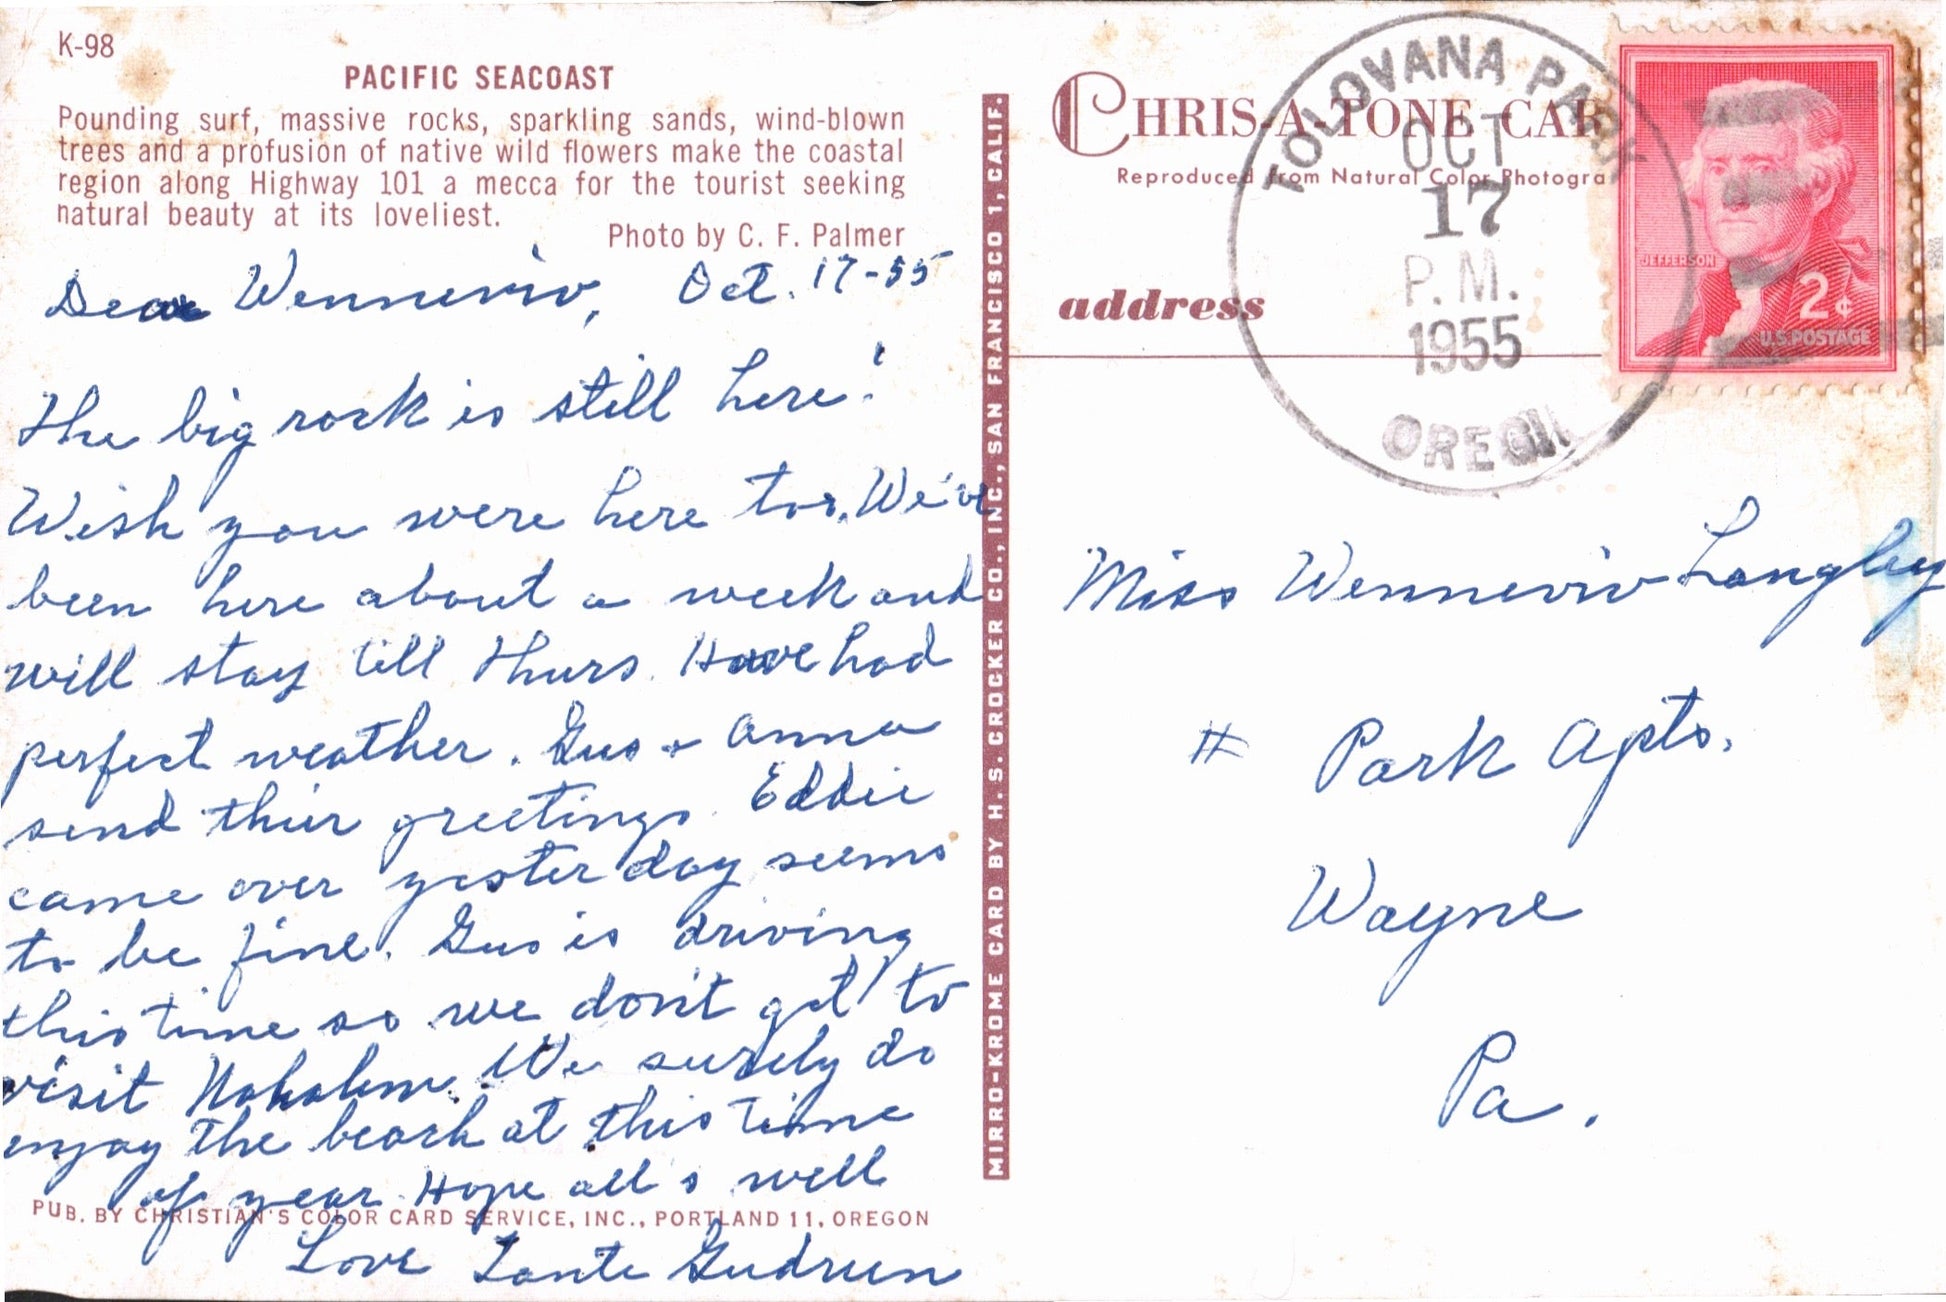 K-98
PACIFIC SEACOAST
Pounding surf, massive rocks, sparkling sands, wind-blown
trees and a profusion of native wild flowers make the coastal
region along Highway 101 a mecca for the tourist seeking
natural beauty at its loveliest.
Photo by C. F. Palmer
Dear Wenneviv, Oct. 17-55
The big rock is still here!
Wish you were here too. We've
been here about a week and
will stay till Thurs. Have had
perfect weather. Gus + Anna
send their greetings. Eddie
came over yesterday seems
to be fine. Gus is driving
this time so we don't get to
visit Nehalem. We surely do
enjoy the beach at this time
of year. Hope all's well
PUB. BY CHRISTIAN'S COLOR CARD SERVICE, INC., PORTLAND 11, OREGON
Love Tante Gudrun
MIRRO-KROME CARD BY H. S. CROCKER CO., INC., SAN FRANCISCO 1, CALIF.
CHRIS-A-TONE CAR
Reproduced from Natural Color Photogra
address
TOLOVANA PARK
OCT
17
P.M.
1955
OREGON
JEFFERSON
2¢
U.S. POSTAGE
Miss Wenneviv Langley
# Park Apts.
Wayne
Pa.